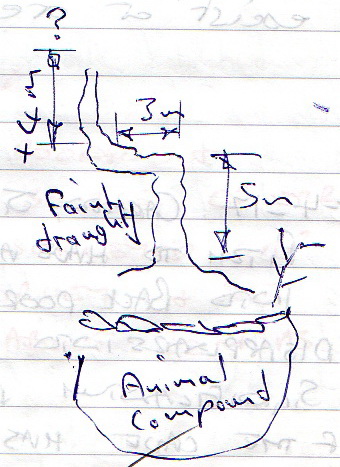 ?
3m
5m
Faintly
draughty
Animal
Compound